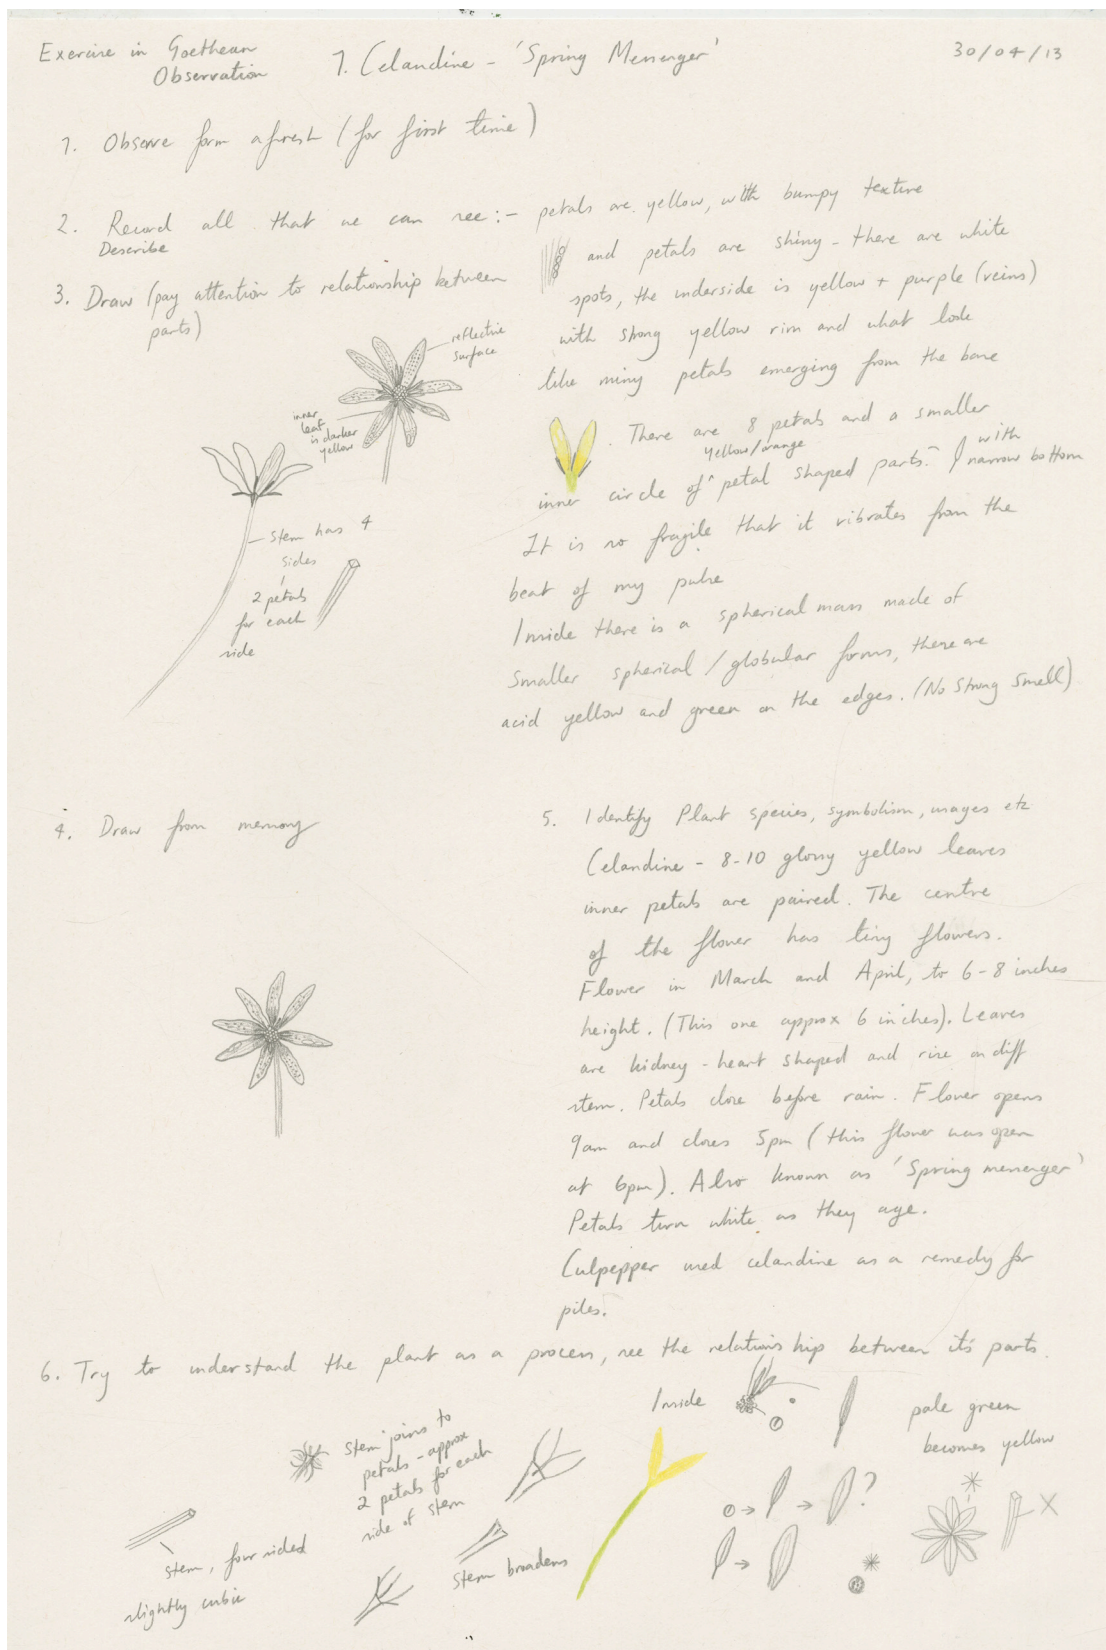 Exercise in Goethean
Observation
1. Celandine - 'Spring Messenger'
30/04/13
1. Observe form afresh (for first time)
2. Record all that we can see :- petals are yellow, with bumpy texture
Describe
and petals are shiny - there are white
spots, the underside is yellow + purple (veins)
with strong yellow rim and what look
like miny petals emerging from the base
. There are 8 petals and a smaller
yellow/orange
inner circle of ^ petal shaped parts. with
narrow bottom
It is so fragile that it vibrates from the
beat of my pulse
Inside there is a spherical mass made of
smaller spherical / globular forms, these are
acid yellow and green on the edges. (No strong smell)
3. Draw (pay attention to relationship between
parts)
reflective
surface
inner
leaf
is darker
yellow
stem has 4
sides
2 petals
for each
side
4. Draw from memory
5. Identify Plant species, symbolism, images etc
Celandine - 8-10 glossy yellow leaves
inner petals are paired. The centre
of the flower has tiny flowers.
Flower in March and April, to 6-8 inches
height. (This one approx 6 inches). Leaves
are kidney - heart shaped and rise on diff
stem. Petals close before rain. Flower opens
9am and closes 5pm (this flower was open
at 6pm). Also known as 'Spring messenger'
Petals turn white as they age.
Culpepper used celandine as a remedy for
piles.
6. Try to understand the plant as a process, see the relationship between it's parts.
Inside
pale green
becomes yellow
stem joins to
petals - approx
2 petals for each
side of stem
?
X
stem, four sided
slightly cubic
stem broadens